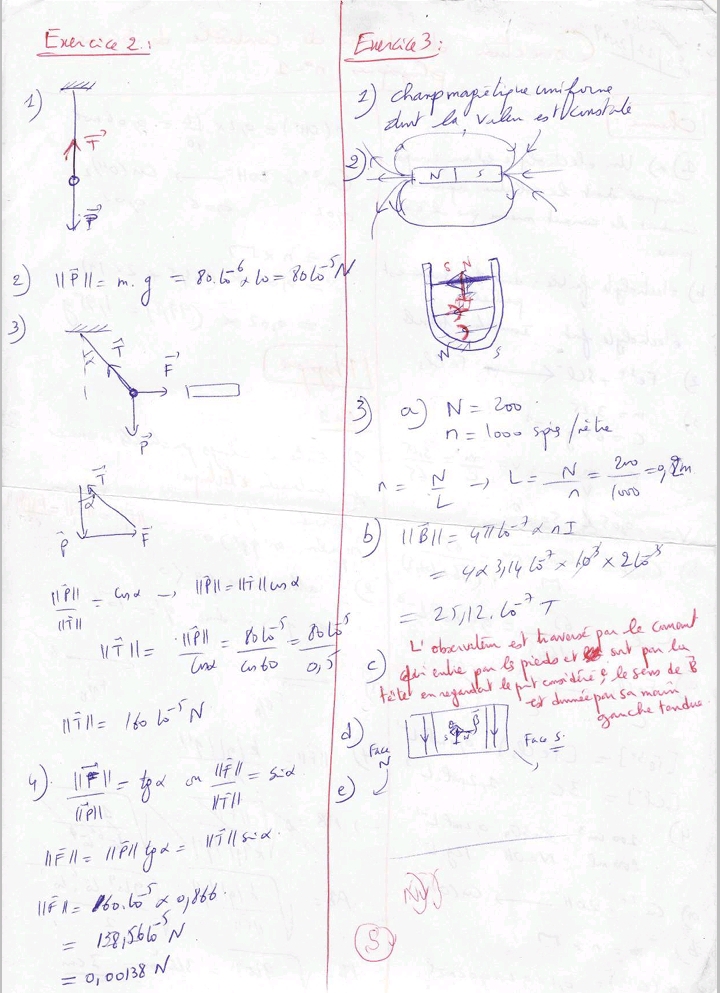 Exercice 2 :
1)
T
P
2) ||P|| = m.g = 80.10⁻⁶ x 10 = 80 10⁻⁵ N
3)
α
T
F
P
T
α
P
F
||P|| / ||T|| = cos α → ||P|| = ||T|| cos α
||T|| = ||P|| / cos α = 80 10⁻⁵ / cos 60 = 80 10⁻⁵ / 0,5
||T|| = 160 10⁻⁵ N
4) ||F|| / ||P|| = tg α ou ||F|| / ||T|| = sin α
||F|| = ||P|| tg α = ||T|| sin α.
||F|| = 160.10⁻⁵ x 0,866.
= 138,56 10⁻⁵ N
= 0,00138 N
Exercice 3 :
1) champ magnétique uniforme
dont la valeur est constante
2)
N S
S N
N S
3) a) N = 200
n = 1000 spires / mètre
n = N / L → L = N / n = 200 / 1000 = 0,2 m
b) ||B|| = 4π 10⁻⁷ x n I
= 4 x 3,14 10⁻⁷ x 10³ x 2 10⁻³
= 25,12. 10⁻⁷ T
c) L'observateur est traversé par le courant
qui entre par les pieds et sort par la
tête en regardant le pt considéré, le sens de B
est donnée par sa main
gauche tendue.
d)
S N
B
Face N
Face S.
e)
S